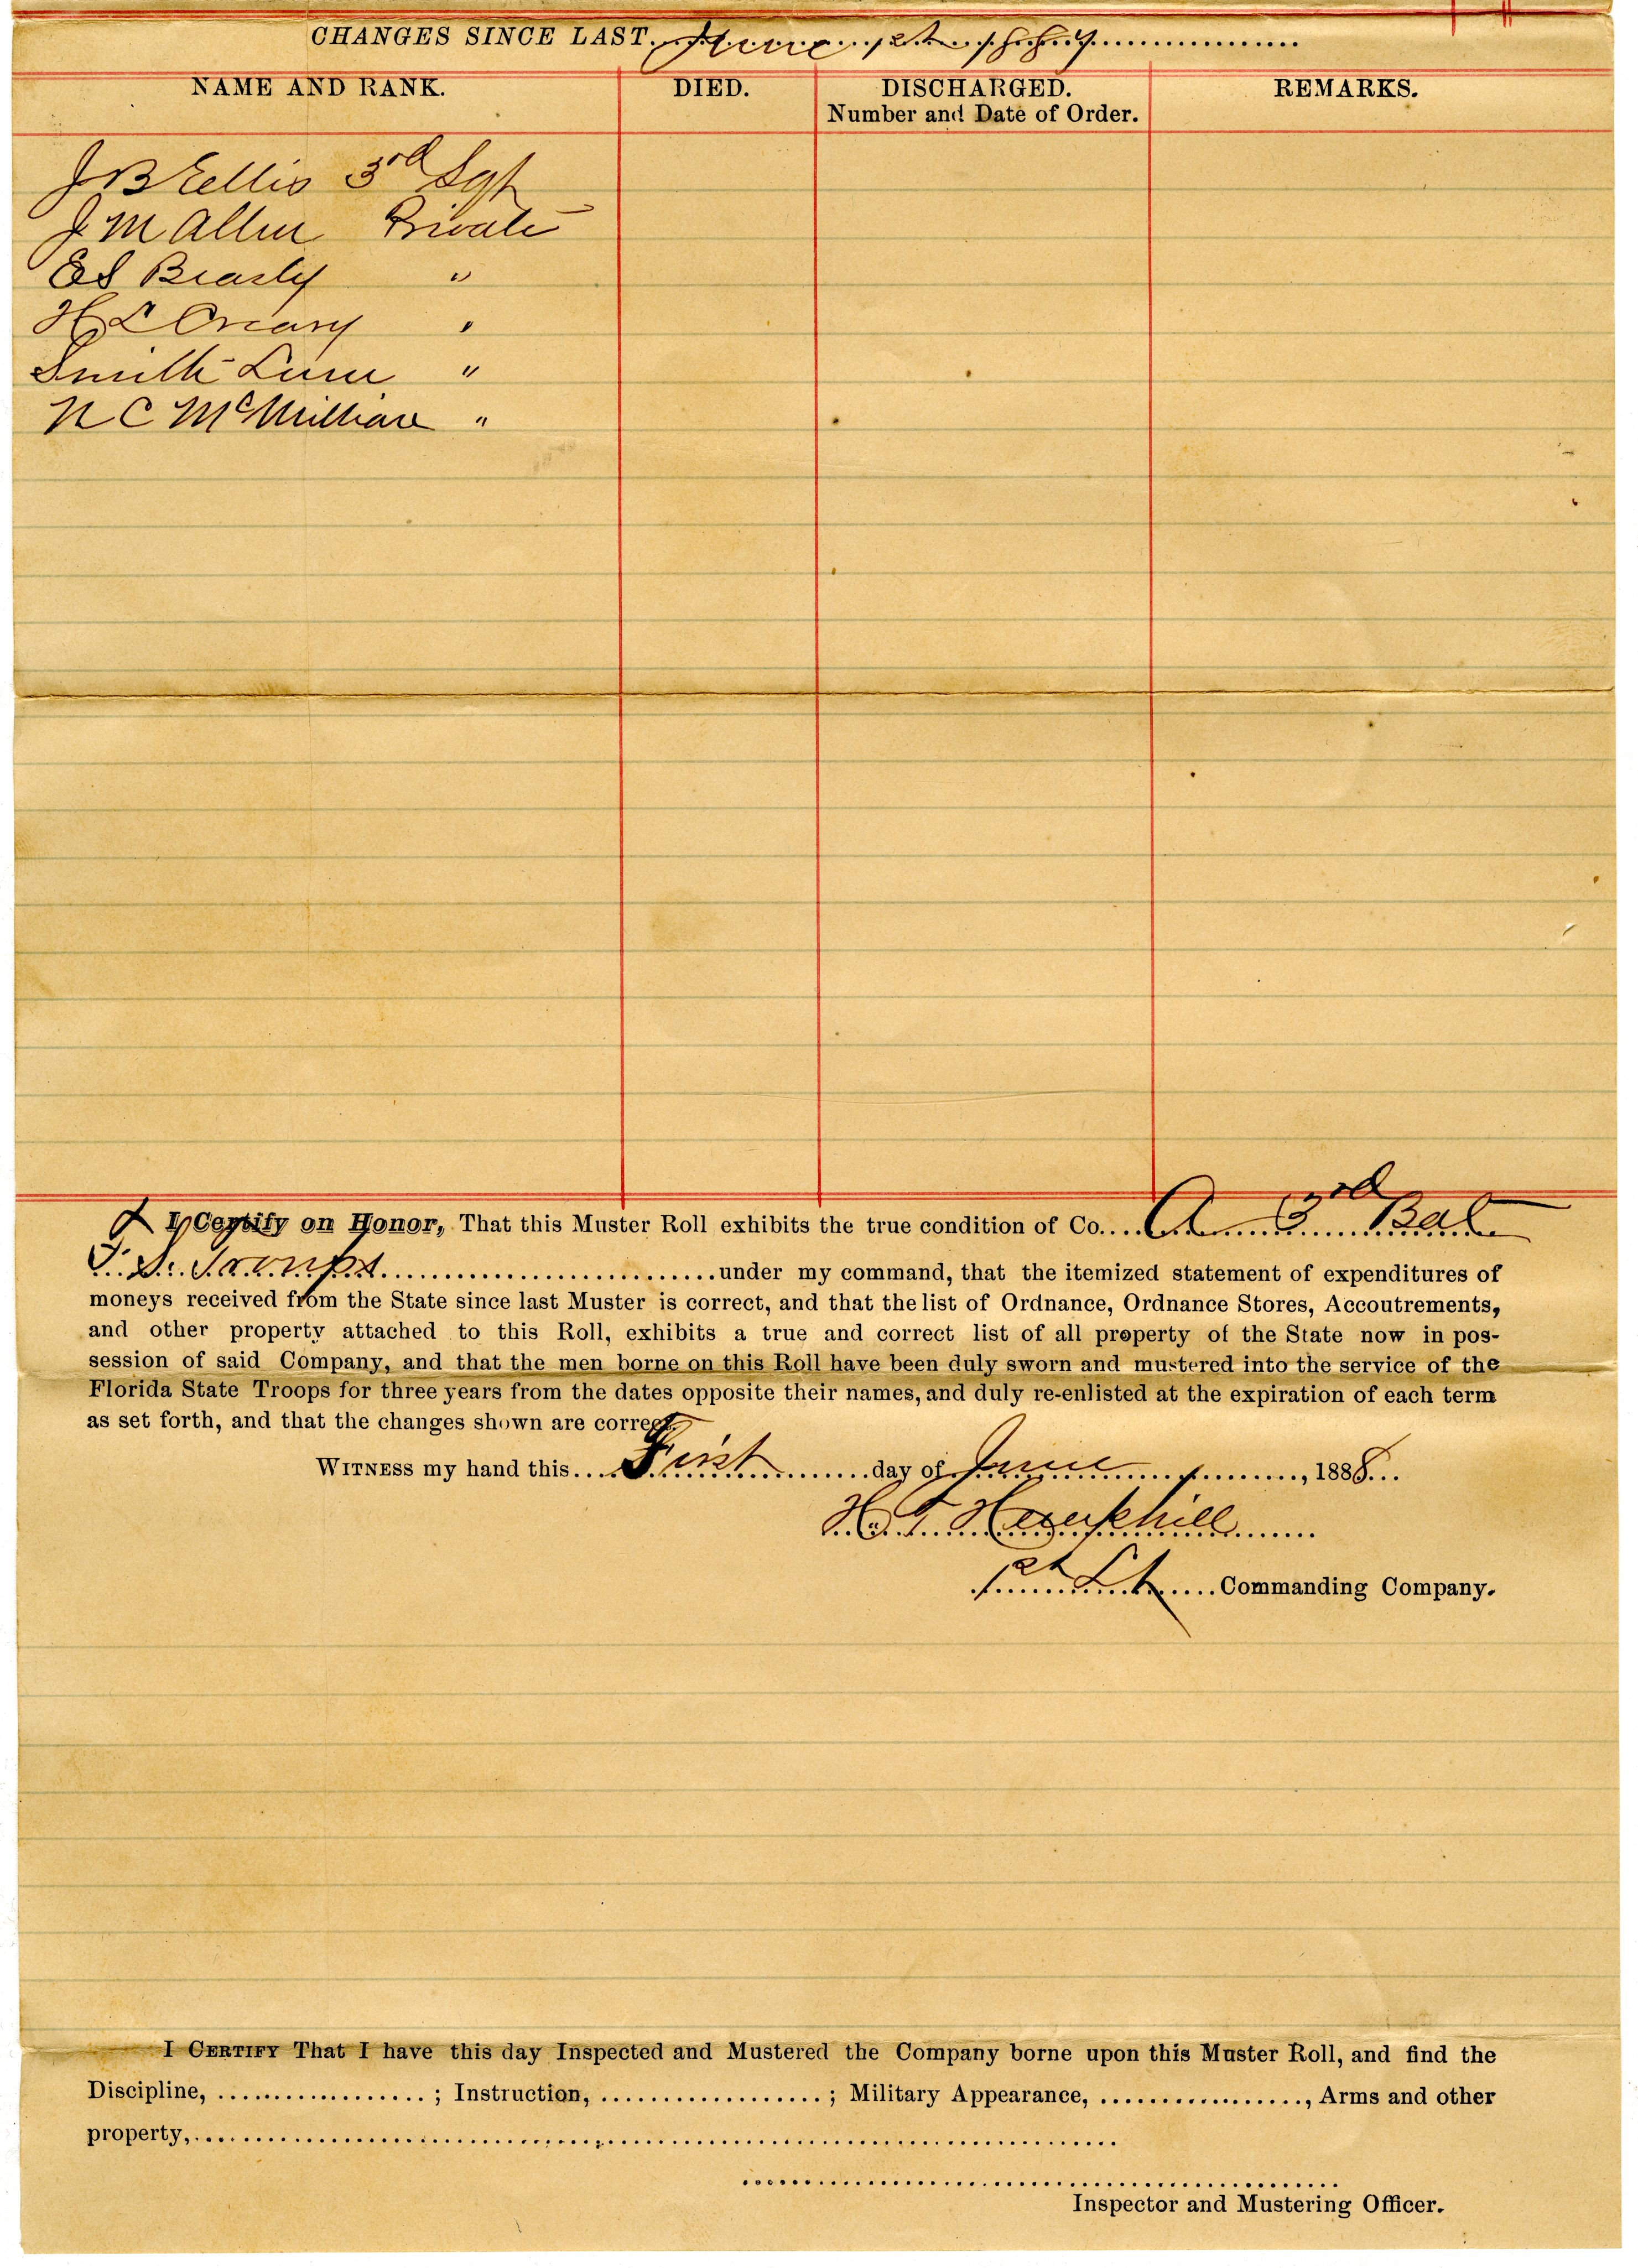 CHANGES SINCE LAST June 1st 1887
NAME AND RANK. DIED. DISCHARGED. REMARKS.
Number and Date of Order.
J B Ellis 3rd Sgt
J M Allen Private
E S Beasly "
H L Creary "
Smith "
N C McMillian "
I Certify on Honor, That this Muster Roll exhibits the true condition of Co.... A 3rd Bat
F. S. Troops under my command, that the itemized statement of expenditures of
moneys received from the State since last Muster is correct, and that the list of Ordnance, Ordnance Stores, Accoutrements,
and other property attached to this Roll, exhibits a true and correct list of all property of the State now in pos-
session of said Company, and that the men borne on this Roll have been duly sworn and mustered into the service of the
Florida State Troops for three years from the dates opposite their names, and duly re-enlisted at the expiration of each term
as set forth, and that the changes shown are correct.
WITNESS my hand this.... First ....day of June ...., 1888...
Hemphill
1st Lt .... Commanding Company.
I CERTIFY That I have this day Inspected and Mustered the Company borne upon this Muster Roll, and find the
Discipline, .................. ; Instruction, ................... ; Military Appearance, .................., Arms and other
property,..................................................
Inspector and Mustering Officer.